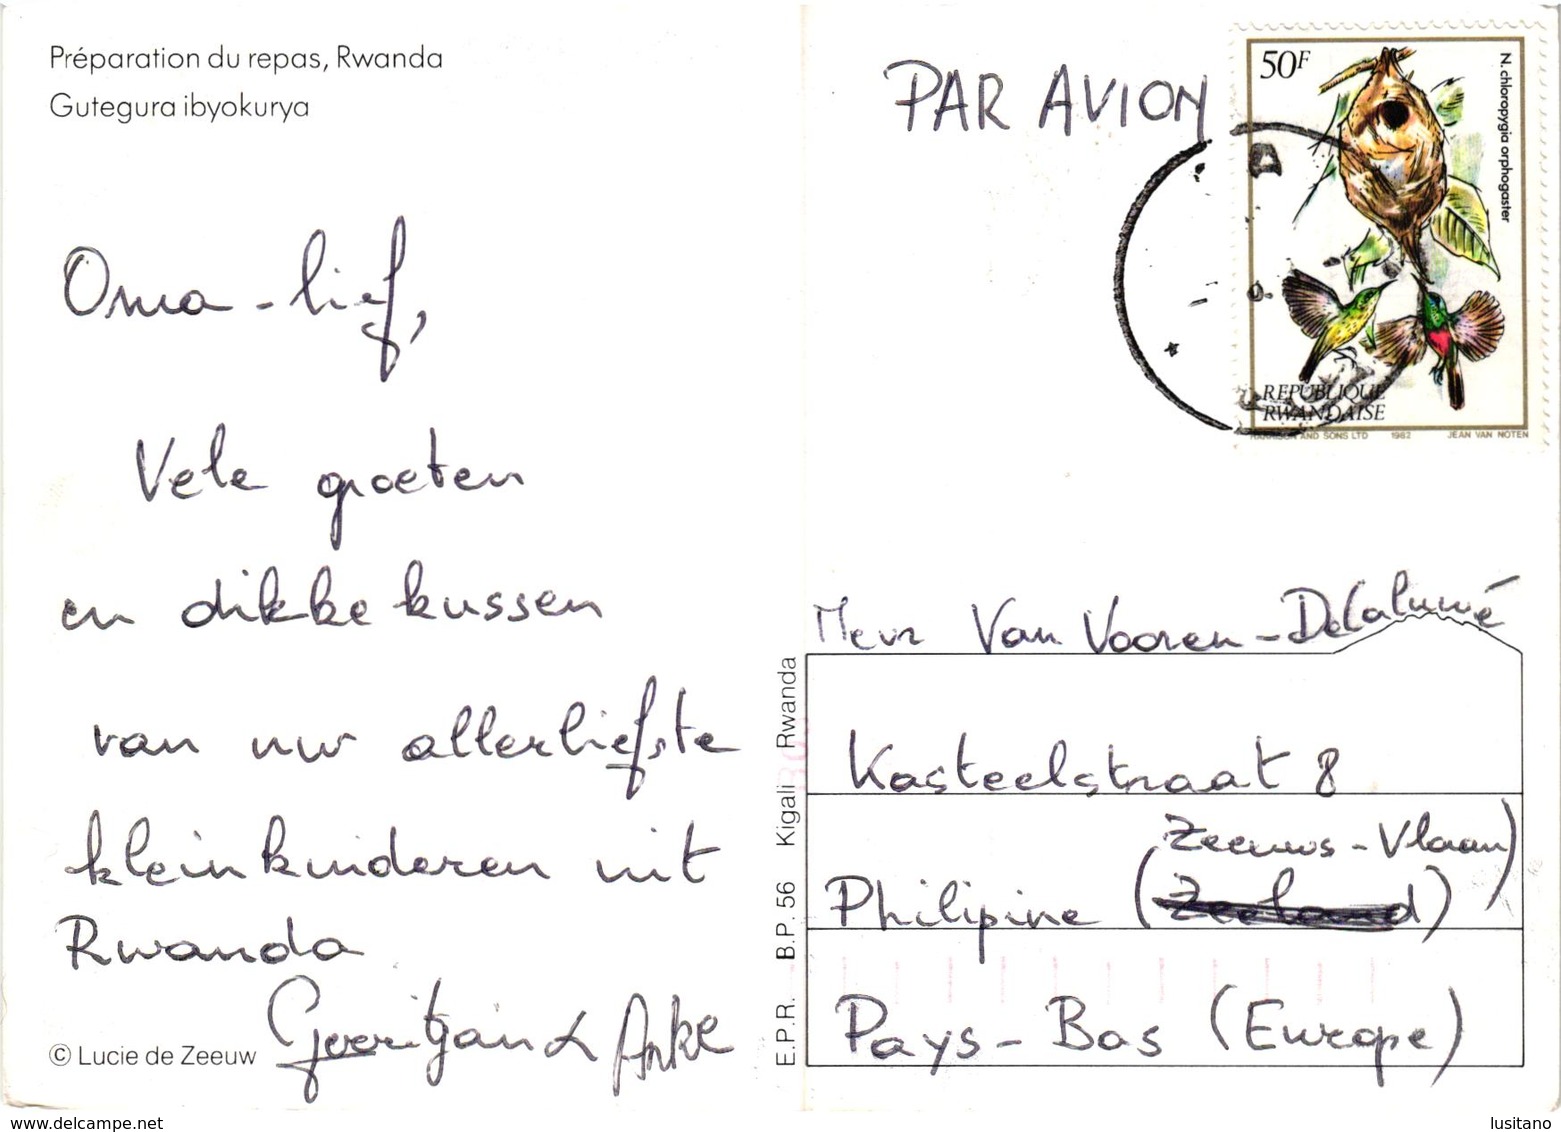 Préparation du repas, Rwanda
Gutegura ibyokurya
Oma - lief,
Vele groeten
en dikke kussen
van uw allerliefste
kleinkinderen uit
Rwanda
Geertjan & Anke
© Lucie de Zeeuw
E.P.R. B.P. 56 Kigali Rwanda
PAR AVION
50F
N. chloropygia orphogaster
REPUBLIQUE
RWANDAISE
HARRISON AND SONS LTD 1982 JEAN VAN NOTEN
Mevr Van Vooren - DeCaluwé
Kasteelstraat 8
Zeeuws - Vlaan)
Philipine (Zeeland)
Pays - Bas (Europe)
www.delcampe.net
lusitano